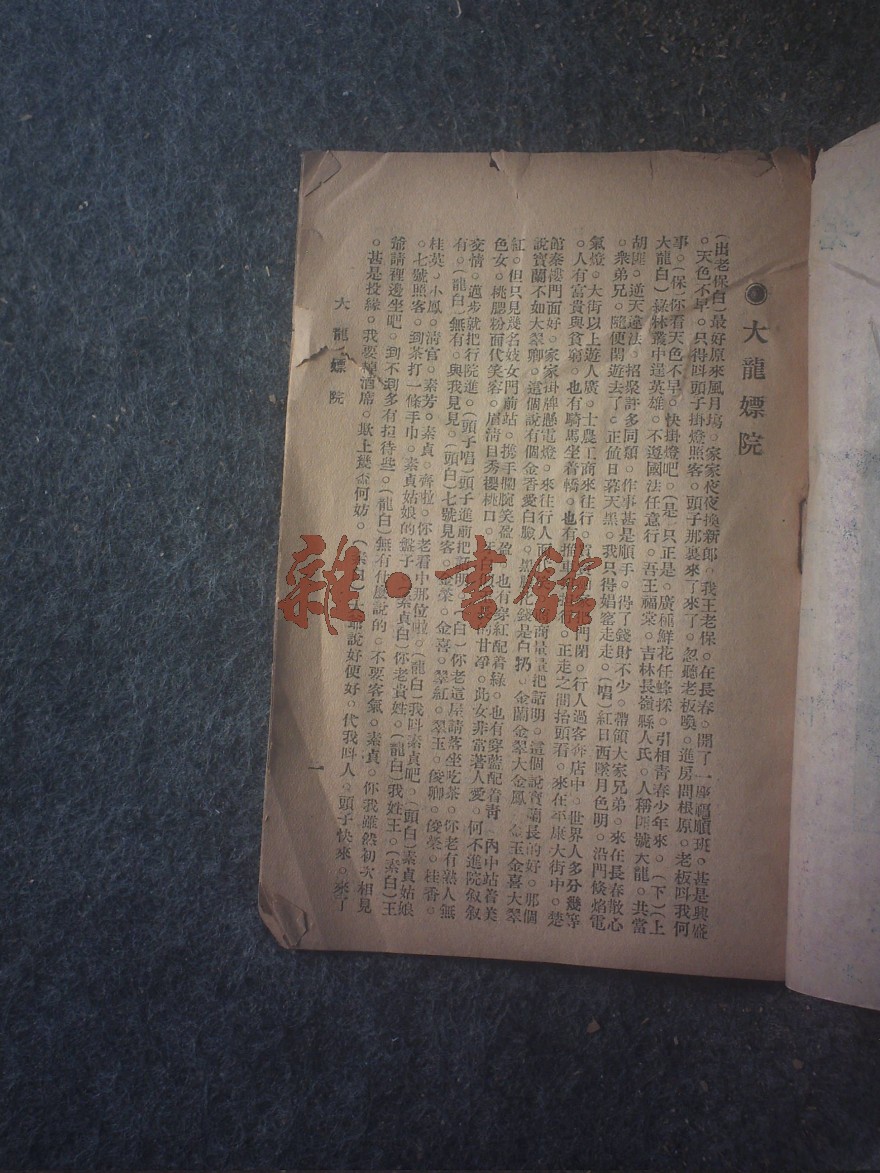 大龍嫖院
(出老保白)最好原來風月塲。家家夜夜換新郎。我王老保。在長春。開了一座福順班。甚是興盛
。天色不早。只得叫頭子掛燈照客。頭子那裏來了來了。忽聽老板喚。進房問根原。老板叫我何
事。(保)你看天色不早。快掛燈吧。(是)只正是。廣種鮮花任蜂採。引相靑春少年來。(下)(上
大龍白)綠林叢中逞英雄。不遵國法任意行。吾王福棠。吉林長嶺縣人氏。人稱匪號大龍。共當
胡匪。逆天違法。招聚許多同類。作事甚是順手。得了錢財不少。帶領大家兄弟。來在長春散心
。衆弟兄。隨便閑遊去了。正値日暮天黑。我只得娼窰走走。(唱)紅日西墜月色明。沿門倏焰電
氣燈。大街以上遊人廣。士農工商來往行。門閉。行人過客奔店中。世界人多分幾等
。人有富貴與貧窮。也有騎馬坐着轎。也有推。正走之間抬頭看。來在平康大街中。楚
館秦樓門面好。家家掛牌懸電燈。來往行人面商量把話明。這個說寶蘭長的好。那個
說寳蘭不如大翠卿。這個說有個金香愛白臉。是白扔。金蘭金翠大金鳳。金玉金喜大翠
紅。但只見幾名妓女門前站。携手闌腕笑盈盈。也有穿紅配着綠。也有穿藍配着靑。內中站着美
色女。桃腮粉面代笑容。眉淸目秀櫻桃口。的甘淨。此女非常著人愛。何不進院叙叙
交情。邁步就把行院進。(頭子唱)頭子進前把話明。(白)你老這房請落坐吃茶。你老有熟人無
有。(龍白)無有。與我見見。(頭白)七號見客。金榮。金喜。翠紅。翠玉。俊卿。俊榮。桂香。
桂英。小鳳。淸官。素芳。素貞。齊啦。你老看中那位啦。(龍白)我叫素貞吧。(頭白)素貞姑娘
。七號照客。到茶打一條手巾。素貞姑娘的盤子。(素貞白)你老貴姓。(龍白)我姓王。(素白)王
爺請裡邊坐吧。到不到多有担待些。(龍白)無有什麼說的。不要客氣。素貞。你我雖然初次相見
。甚是投緣。我要擺酒席。歡上幾盃何妨。(素白)大爺說好便好。代我叫人。頭子快來。來了
大龍嫖院
一
雜·書館